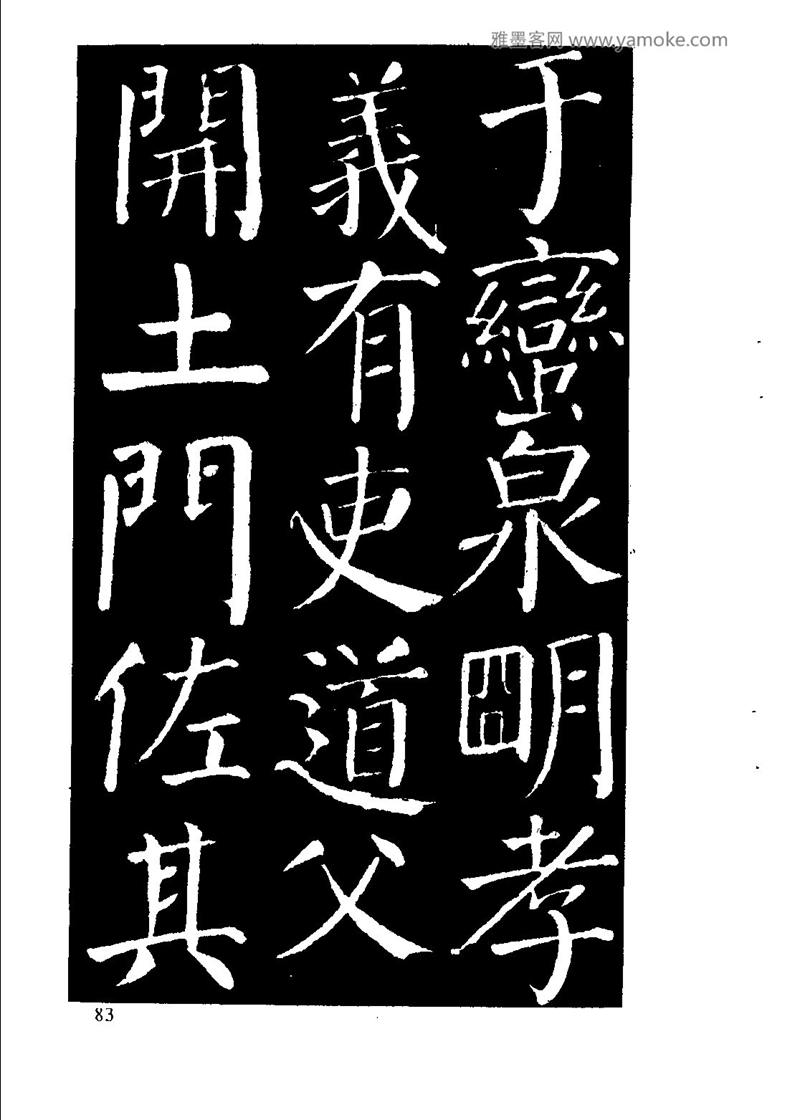 雅墨客网 www.yamoke.com
于蠻泉明孝
義有吏道父
開土門佐其
83